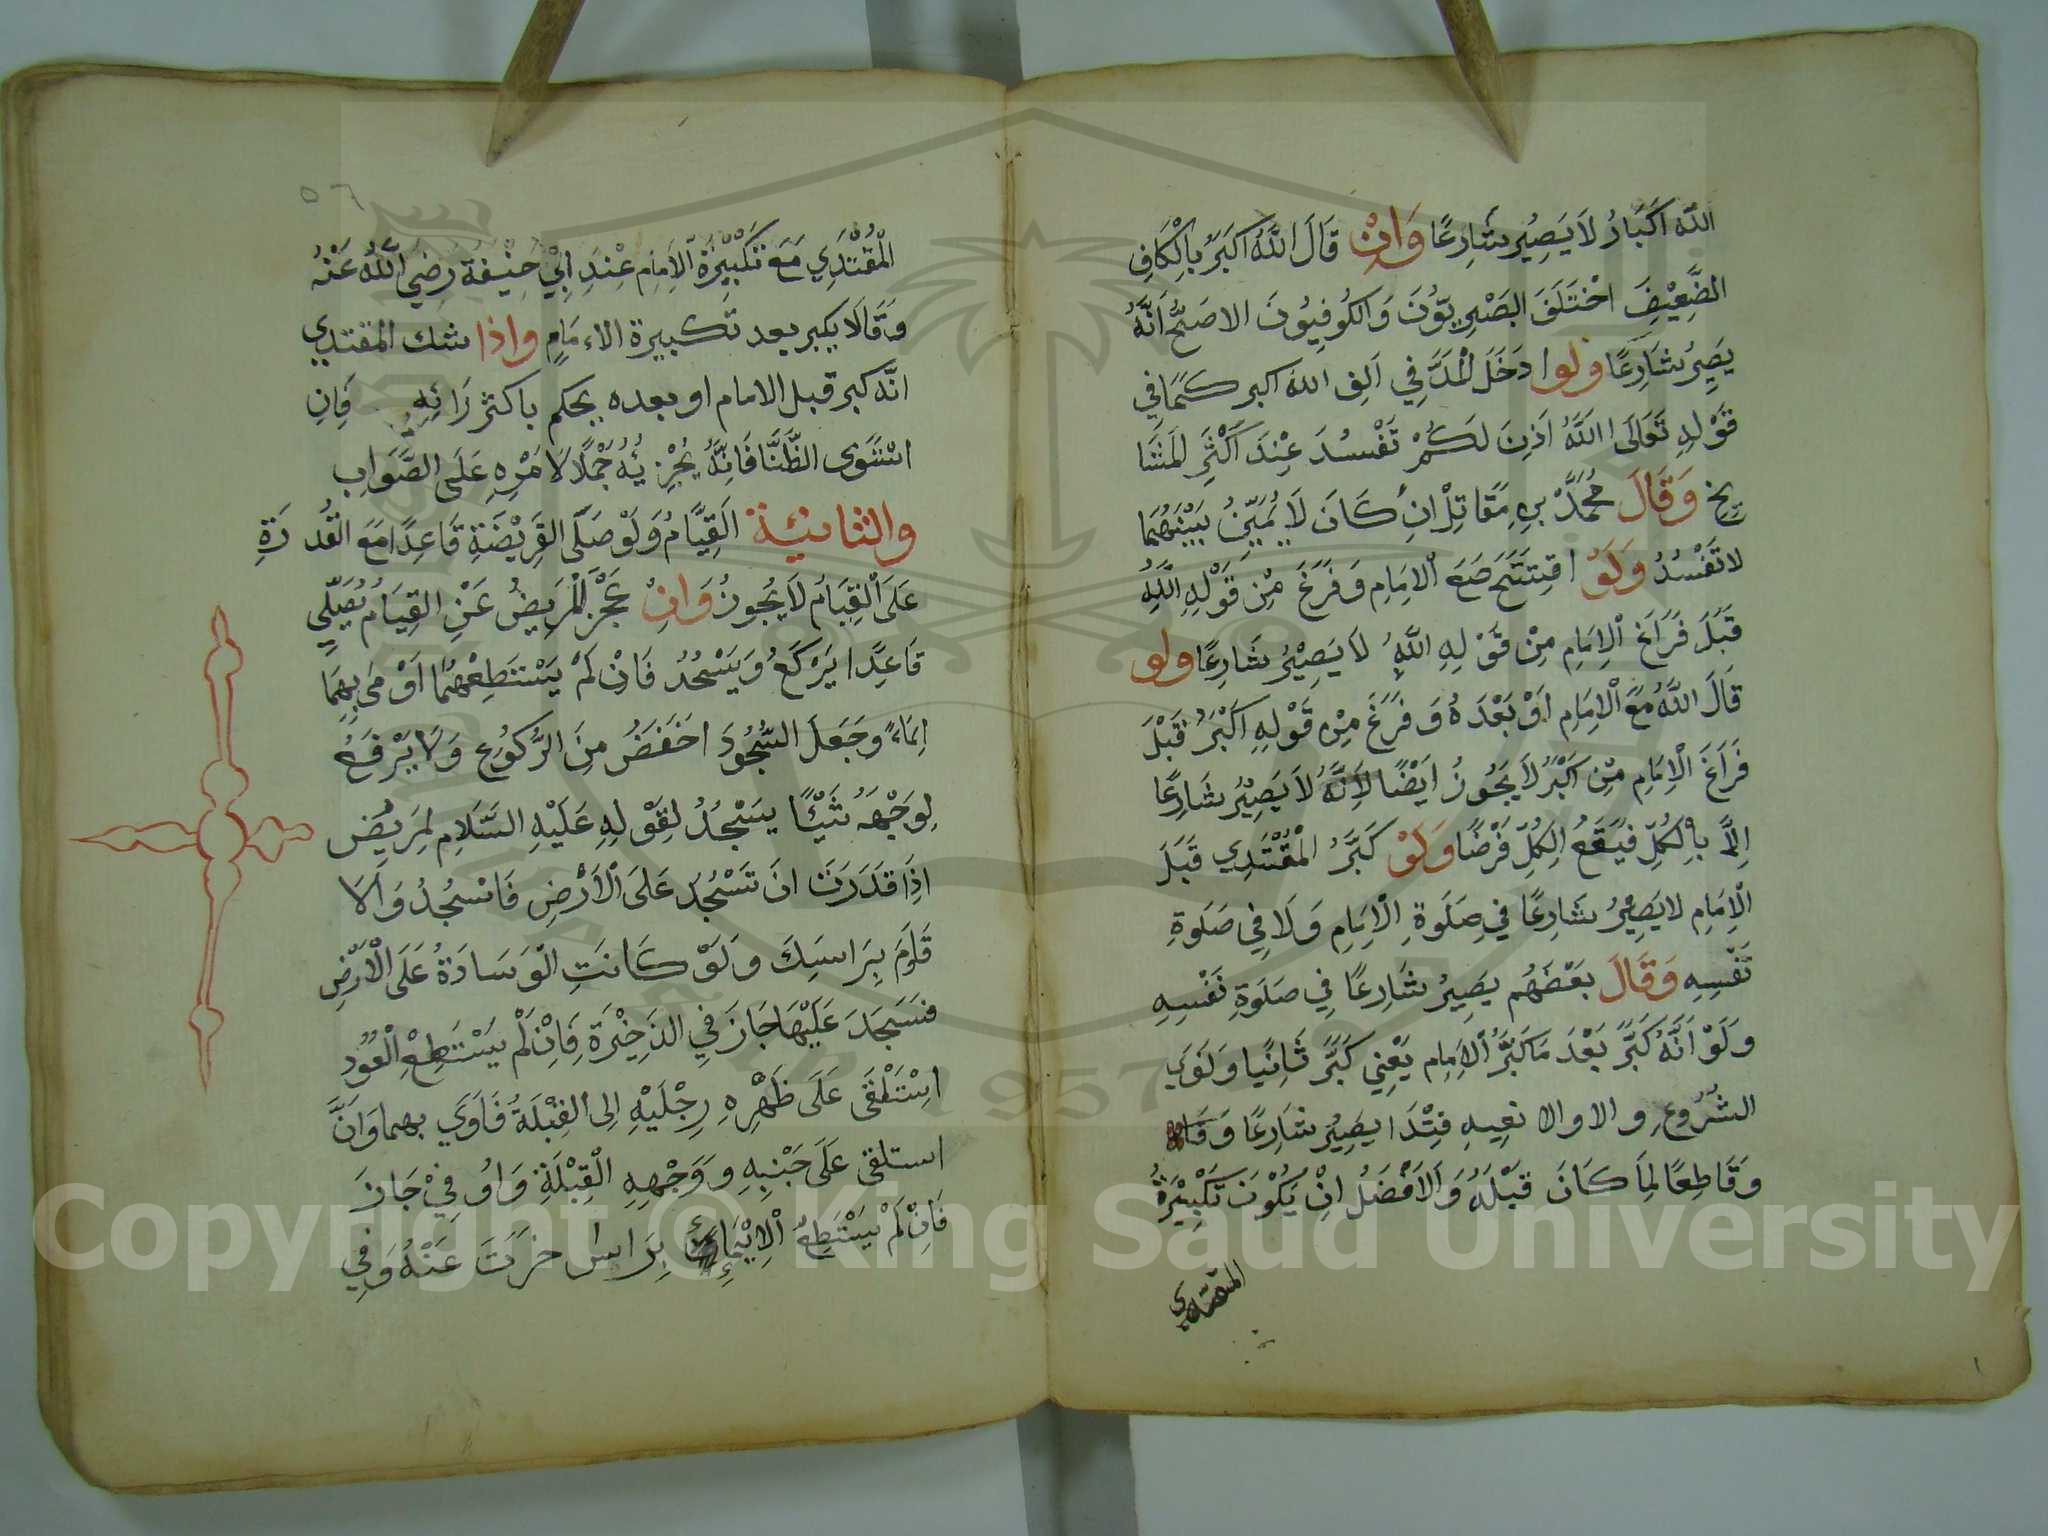 الله اَكْبَارُ لَا يَصِيْرُ شَارِعًا وَاِنْ قَالَ اللَّهُ اَكْبَرُ بِالْكَافِ
الضَّعِيْفِ اخْتَلَفَ البَصْرِيّوُنَ وَالكُوفِيُونَ الاصَحُّ اَنَّهُ
يَصِيْرُ شَارِعًا ولوا دَخَلَ الْمَدَّ فِي اَلِفِ الله اكبر كَمَا فِي
قَوْلِهِ تَعَالَى اللَّهُ اَذِنَ لَكُمْ تَفْسُدَ عِنْدَ اَكْثَرِ المَشَا
يِخِ وَقَالَ مُحَمَّدُ بِن مَقَاتِل اِنْ كَانَ لَا يُمَيِّزُ بَيْنَهُمَا
لا تَفْسُدُ وَلَوْ افتِتَحَ مَعَ الْاِمَامِ وَفَرَغَ مِنْ قَوْلِهِ اللَّهُ
قَبْلَ فَرَاغِ الْاِمَامِ مِنْ قَوْلِهِ اللَّهُ لَا يَصِيْرُ شَارِعًا ولو
قَالَ اللَّهُ مَعَ الْاِمَامِ اَوْ بَعْدَهُ وَفَرَغَ مِنْ قَوْلِهِ اَكْبَرُ قَبْلَ
فَرَاغِ الْاِمَامِ مِنْ اَكْبَرُ لَا يَجُوزُ اَيْضًا لِاَنَّهُ لَا يَصِيْرُ شَارِعًا
اِلَّا بِالْكُلِّ فَيَقَعُ الكُلِّ فَرْضًا وَلَوْ كَبَّرَ الْمُقْتَدِي قَبْلَ
الْاِمَامِ لا يَصِيْرُ شَارِعًا فِي صَلَوةِ الْاِمَامِ وَلَا فِي صَلَوةِ
نَفْسِهِ وَقَالَ بَعْضُهُم يَصِيْرُ شَارِعًا فِي صَلَوةِ نَفْسِهِ
وَلَوْ اَنَّهُ كَبَّرَ بَعْدَ مَا كَبَّرَ الْاِمَام يَعْنِي كَبَّرَ ثَانِيًا وَنَوَي
الشُرُوعِ و الا يَصِيْرُ شَارِعًا
وَقَاطِعًا لِمَا كَانَ قَبْلَهُ وَالاَفْضَلُ اِنْ يَكُوْنَ تَكْبِيْرَةُ
المقتدي
الْمُقْتَدِي مَعَ تَكْبِيْرَةِ الْاِمَامِ عِنْدِ اَبِيْ حَنِيْفَة رَضِيَ اللَّهُ عَنْهُ
وَقَالَا يكبر بعد تكبيرة الاءمَامِ واذا شك المقتدي
انّه كبر قبل الامام او بعده يحكم باكثر رَائِهِ فَاِنِ
اسْتَوَى الظَّنَّا فَاِنَّهُ يُجْزِيْهُ حَمْلًا لِاَمْرِهِ عَلَى الصَّوَابِ
والثانية القِيَامُ وَلَوْ صَلَّى الفَرِيْضَةِ قَاعِدًا مَعَ القُدرَةِ
عَلَى الْقِيَامِ لَا يَجُوزُ وَاِنْ عَجَزَ الْمَرِيضُ عَنِ القِيَامُ يُصَلِّي
قَاعِدًا يَرْكَعُ وَيَسْجُدُ فَاِنْ لَمْ يَسْتَطِعْهُمَا اَوْمَى بِهِمَا
اِيمَاءً وجَعَلَ السُّجُودَ اخَفَضُ مِنَ الرُّكُوْعِ وَلَا يَرْفَعُ
لِوَجْهِهِ شَيْئًا يسَجْدُ لِقَوْلِهِ عَلَيْهِ السَّلَامِ لِمَرِيْضٍ
اِذَا قَدَرَتَ انَ تَسْجُدَ عَلَى الْاَرْضِ فَاسْجُدُ وَاَلا
فَاَوْمِ بِرَاسِكَ وَلَوْ كَانَتِ الوَسَادَةُ عَلَى الْاَرْضِ
فسَجَدَ عَلَيْهَا جَازَ فِي الذَخِيْرَةِ فَاِنْ لَمْ يَسْتَطِعْ الْقُعُود
اسْتَلْقَى عَلَى ظَهْرِهِ رِجْلَيْهِ اِلى القِبْلَةُ فَاَوْمَي بهما وَاِنَّ
استلقى عَلَى جَنْبِهِ وَوَجْهِهِ الْقِبْلَةِ وَاَوْمِيْ جَازَ
فَاِنْ لَمْ يَسْتَطِعُ الْاِيْمَاءِ بِرَاس اخرَتَ عَنْهُ وَفِي
Copyright © King Saud University
1957